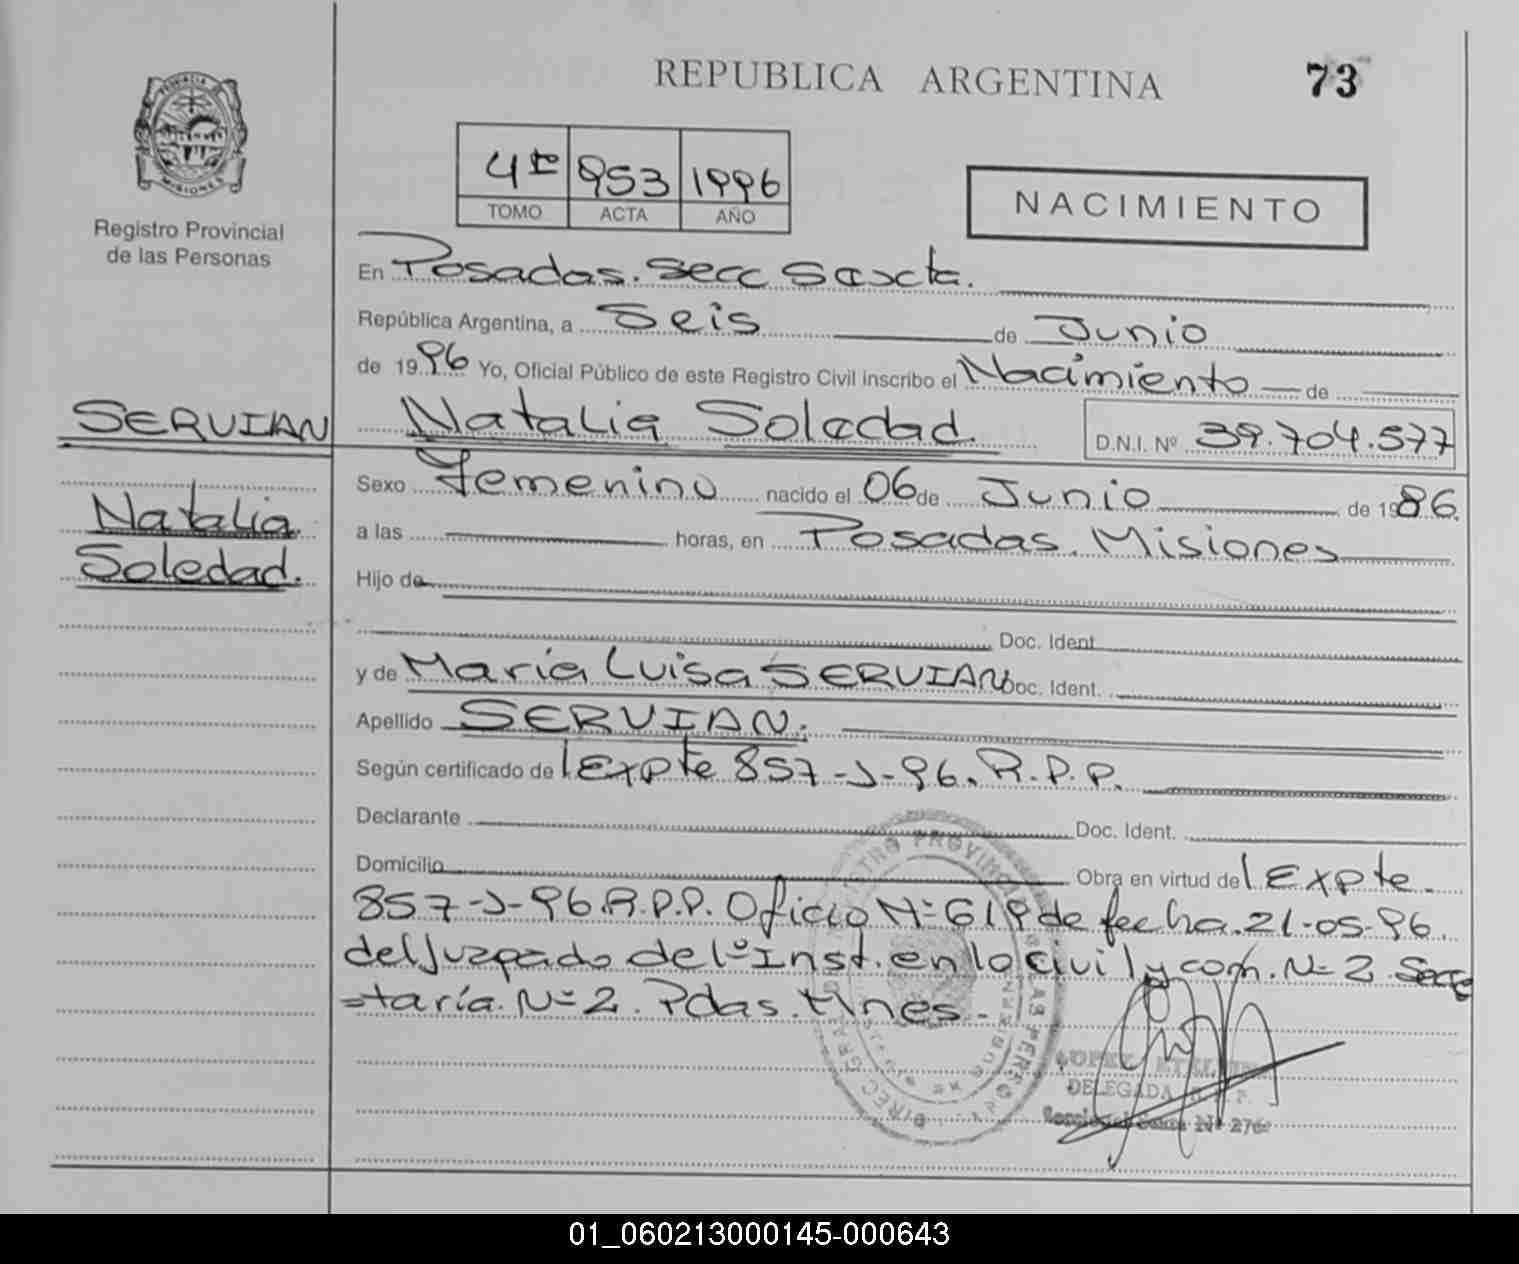 REPUBLICA ARGENTINA
73
PROVINCIA
MISIONES
Registro Provincial
de las Personas
4º 953 1996
TOMO ACTA AÑO
NACIMIENTO
En Posadas. Secc Sexta.
República Argentina, a Seis de Junio
de 1996 Yo, Oficial Público de este Registro Civil inscribo el Nacimiento de
SERVIAN Natalia Soledad. D.N.I. Nº 39.704.577
Natalia
Soledad.
Sexo Femenino nacido el 06 de Junio de 1986.
a las horas, en Posadas. Misiones
Hijo de
Doc. Ident.
y de María Luisa SERVIAN Doc. Ident.
Apellido SERVIAN.
Según certificado de Expte 857-J-96. R.P.P.
Declarante Doc. Ident.
Domicilio Obra en virtud de Expte.
857-J-96.R.P.P. Oficio Nº 619 de fecha.21-05-96.
del Juzgado de 1º Inst. en lo civil y com. Nº 2. Secre
=taría. Nº 2. Pdas. Mnes.
DELEGADA
Seccional Sexta Nº 276
01_060213000145-000643